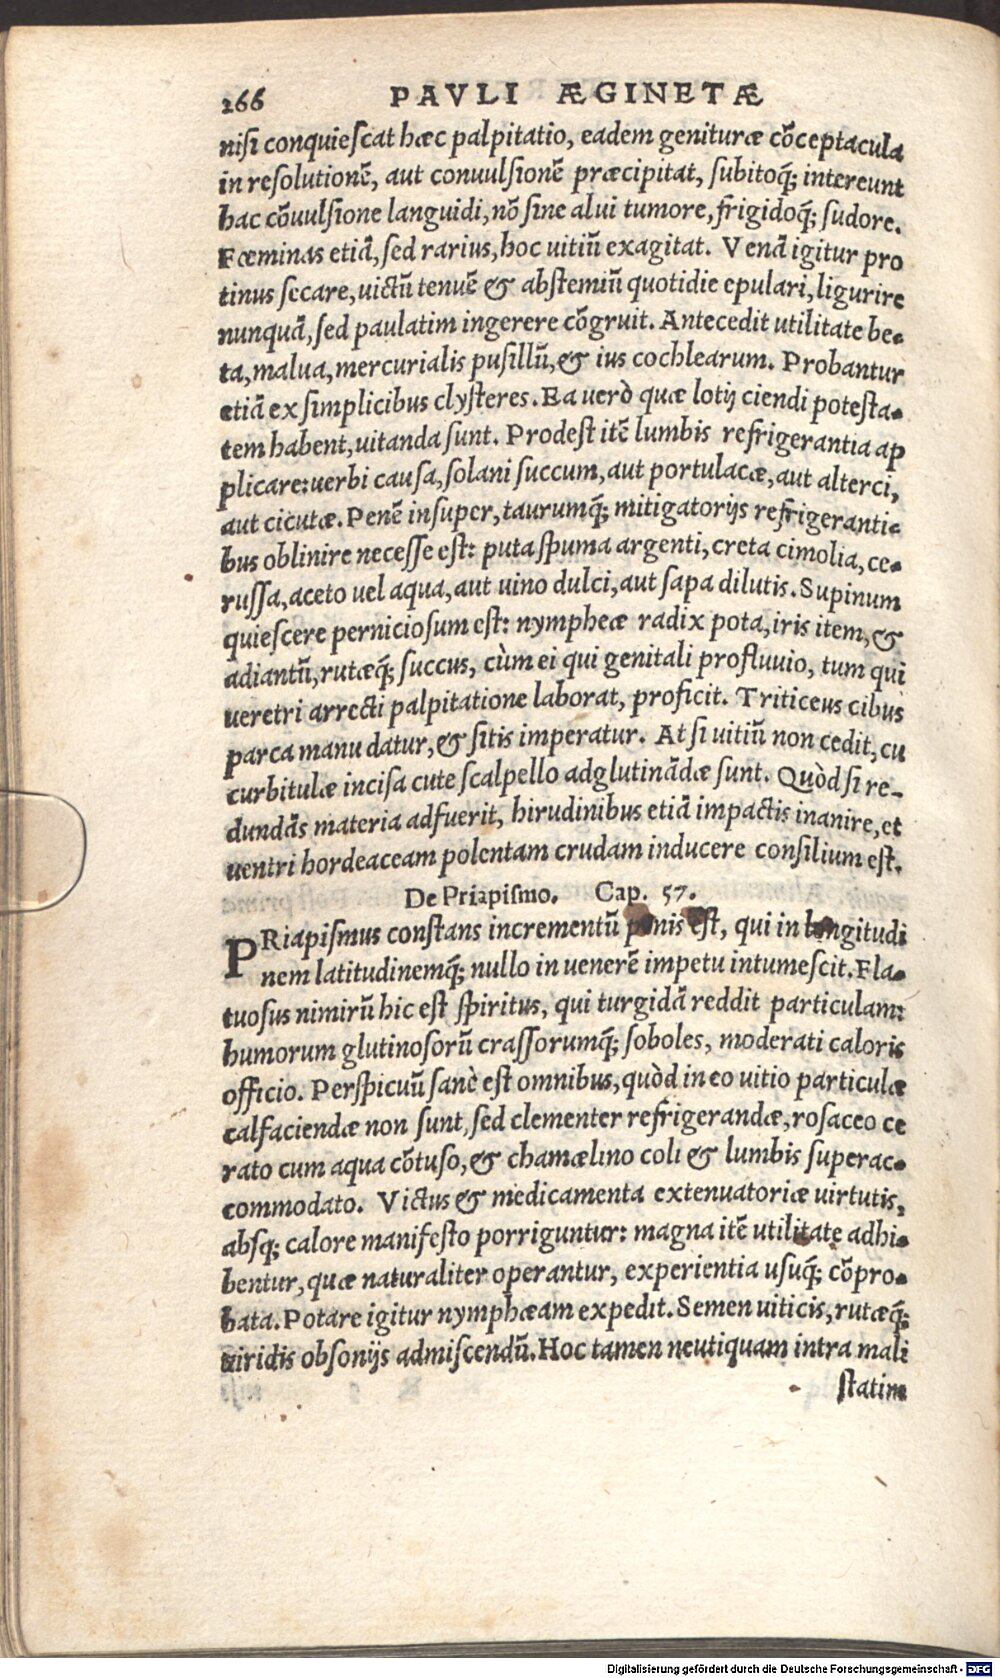 266 PAVLI ÆGINETÆ
nisi conquiescat hæc palpitatio, eadem genituræ cõceptacula
in resolutionẽ, aut conuulsionẽ præcipitat, subitoq́; intereunt
hac cõuulsione languidi, nõ sine alui tumore, frigidoq́; sudore.
Fœminas etiã, sed rarius, hoc uitiũ exagitat. Venã igitur pro
tinus secare, uictũ tenuẽ & abstemiũ quotidie epulari, ligurire
nunquã, sed paulatim ingerere cõgruit. Antecedit utilitate be-
ta, malua, mercurialis pusillũ, & ius cochlearum. Probantur
etiã ex simplicibus clysteres. Ea uerò quæ lotij ciendi potesta-
tem habent, uitanda sunt. Prodest itẽ lumbis refrigerantia ap
plicare: uerbi causa, solani succum, aut portulacæ, aut alterci,
aut cicutæ. Penẽ insuper, taurumq́; mitigatorijs refrigeranti-
bus oblinire necesse est: puta spuma argenti, creta cimolia, ce-
russa, aceto uel aqua, aut uino dulci, aut sapa dilutis. Supinum
quiescere perniciosum est: nympheæ radix pota, iris item, &
adiantũ, rutæq́; succus, cùm ei qui genitali profluuio, tum qui
ueretri arrecti palpitatione laborat, proficit. Triticeus cibus
parca manu datur, & sitis imperatur. At si uitiũ non cedit, cu
curbitulæ incisa cute scalpello adglutinãdæ sunt. Quòd si re-
dundãs materia adfuerit, hirudinibus etiã impactis inanire, et
uentri hordeaceam polentam crudam inducere consilium est.
De Priapismo. Cap. 57.
PRiapismus constans incrementũ penis est, qui in longitudi
nem latitudinemq́; nullo in uenerẽ impetu intumescit. Fla-
tuosus nimirũ hic est spiritus, qui turgidã reddit particulam:
humorum glutinosorũ crassorumq́; soboles, moderati caloris
officio. Perspicuũ sanè est omnibus, quòd in eo uitio particulæ
calfaciendæ non sunt, sed clementer refrigerandæ, rosaceo ce
rato cum aqua cõtuso, & chamælino coli & lumbis superac-
commodato. Victus & medicamenta extenuatoriæ uirtutis,
absq; calore manifesto porriguntur: magna itẽ utilitate adhi-
bentur, quæ naturaliter operantur, experientia usuq́; cõpro-
bata. Potare igitur nymphæam expedit. Semen uiticis, rutæq́;
uiridis obsonijs admiscendũ. Hoc tamen neutiquam intra mali
statim
Digitalisierung gefördert durch die Deutsche Forschungsgemeinschaft - DFG